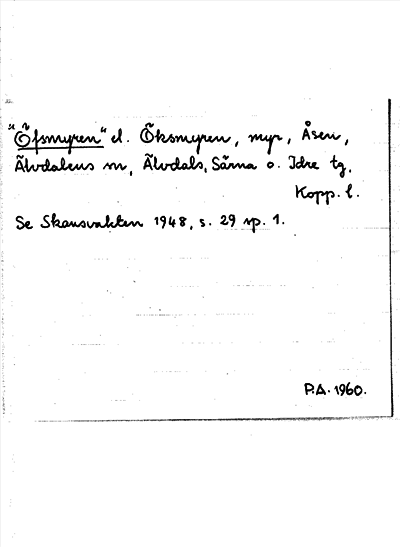 "Öfsmyren" el. Öksmyren, myr, Åsen,
Älvdalens sn, Älvdals, Särna o. Idre tg,
Kopp. l.
Se Skansvakten 1948, s. 29 sp. 1.
P.A. 1960.